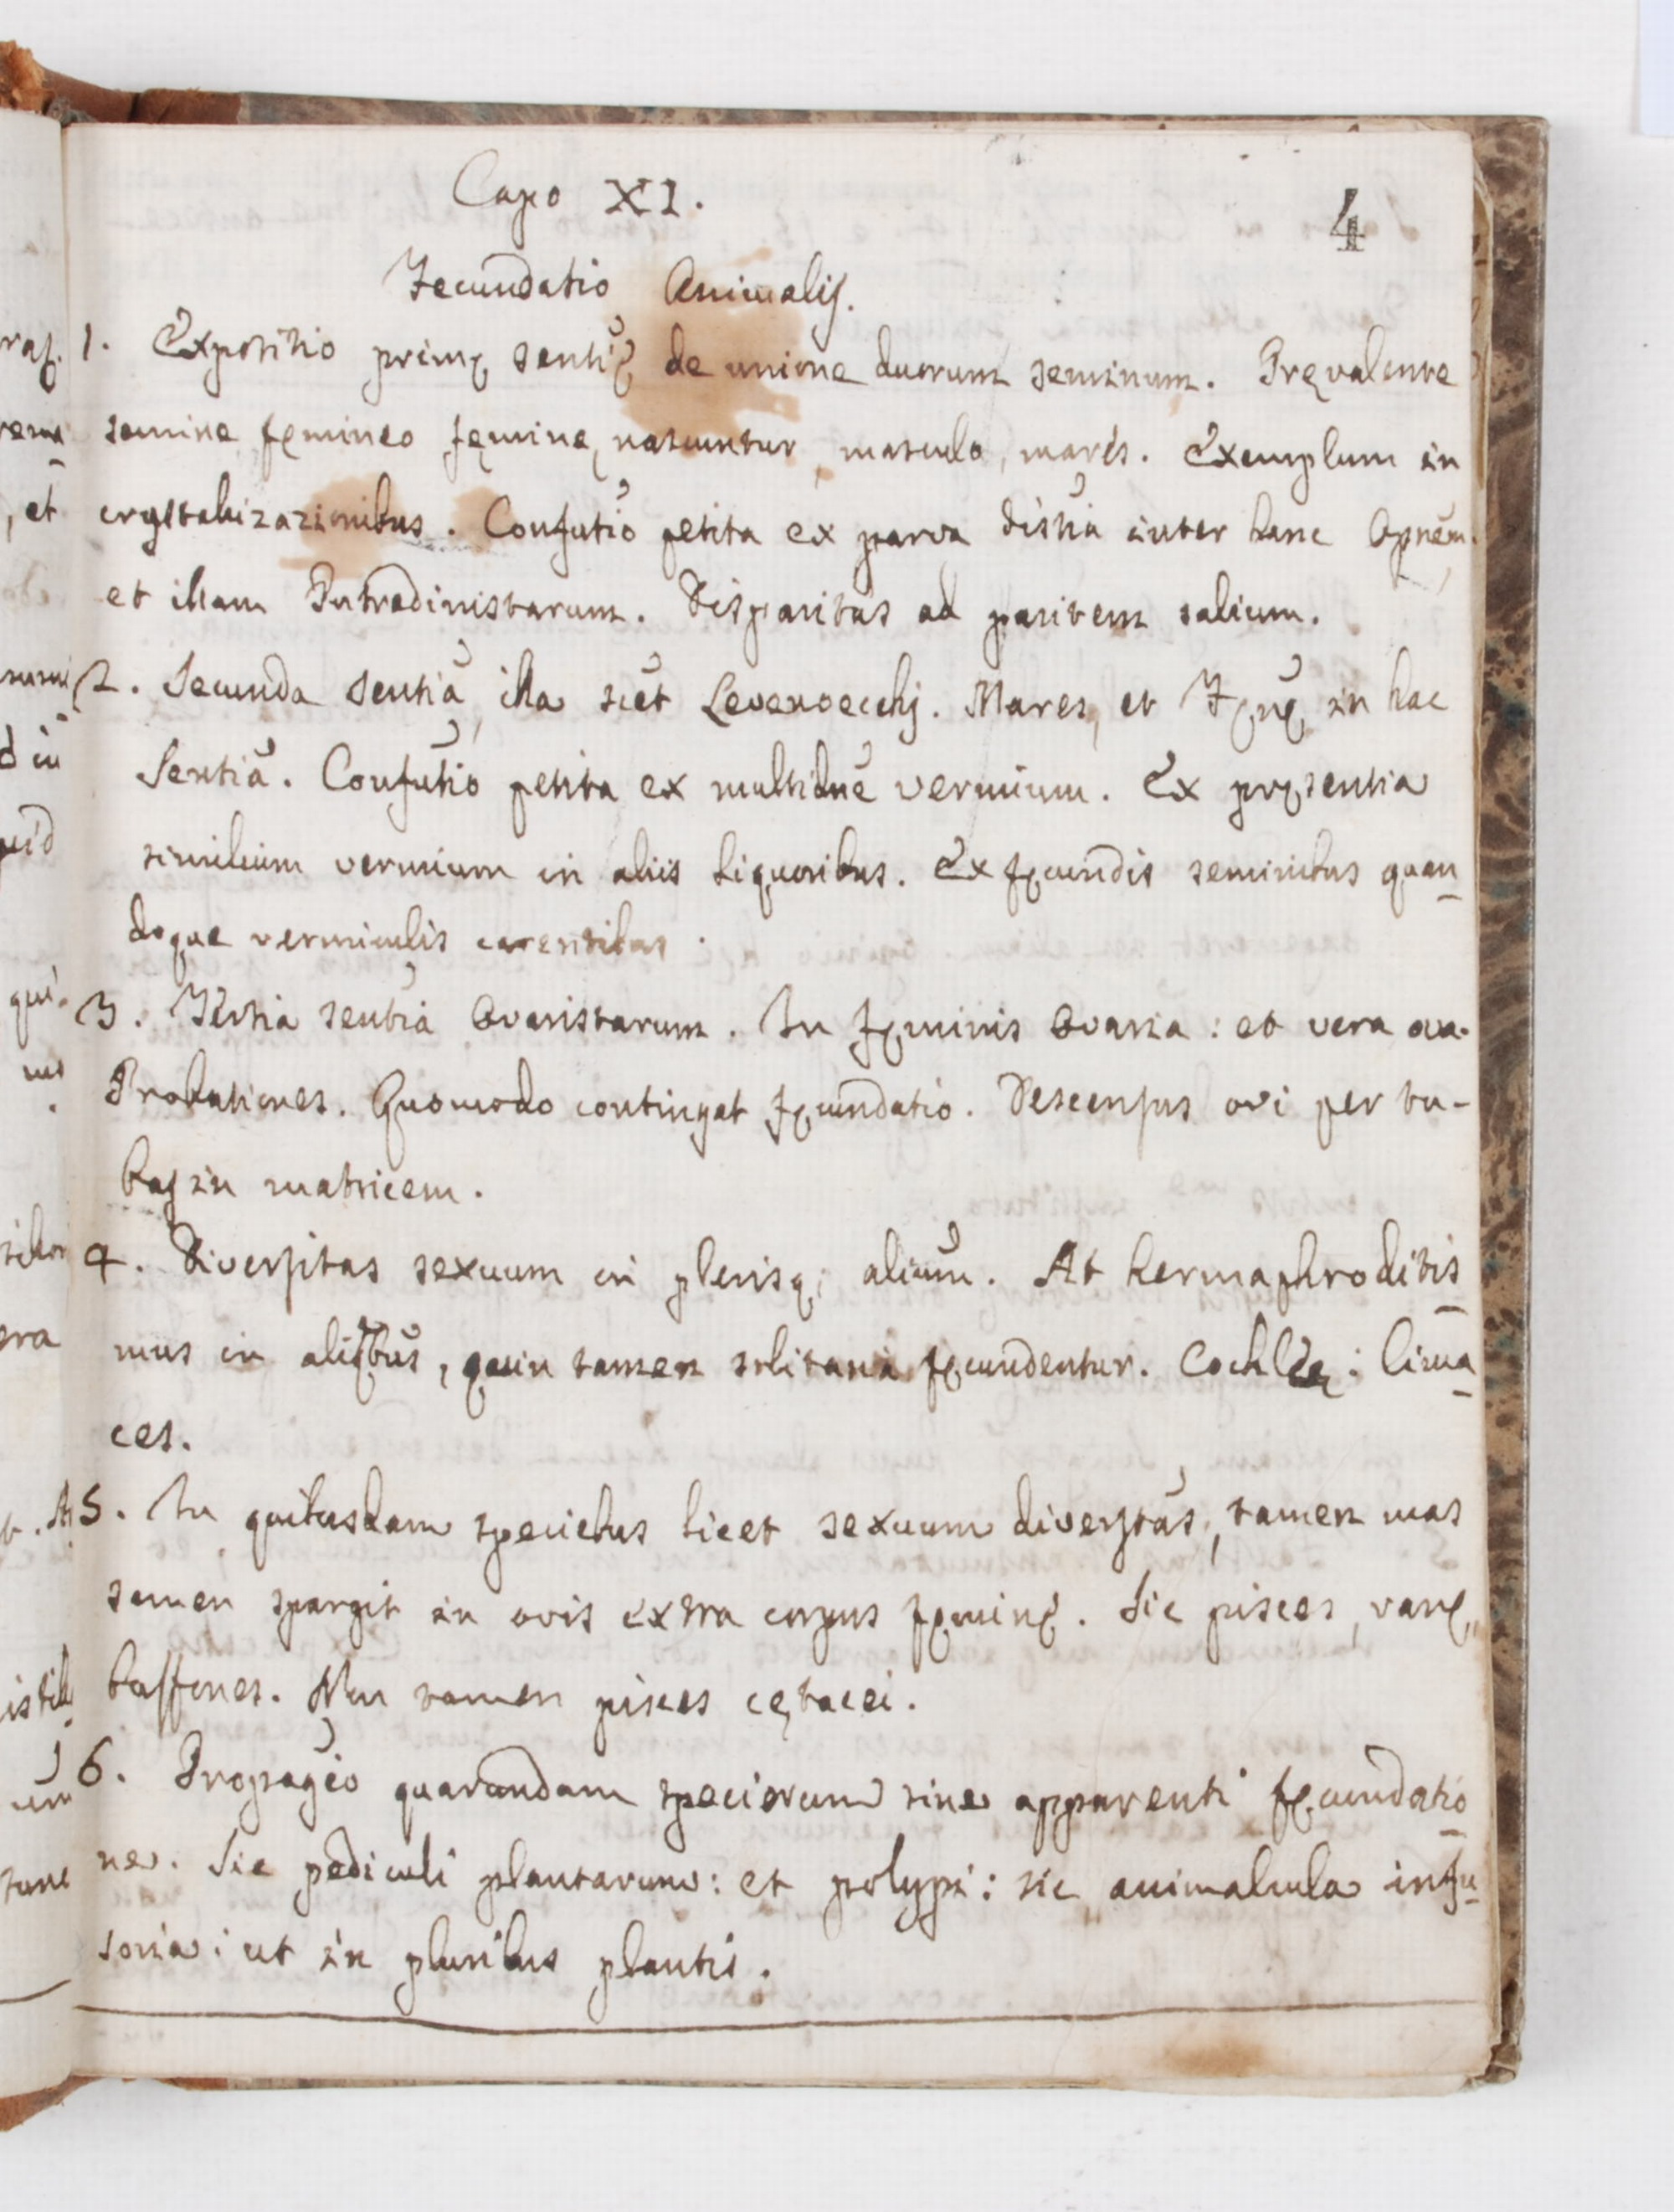 Capo XI.
4
Fecundatio Animalis.
1. Expositio primę sentię de unione duorum seminum. Pręvalente
semine fęmineo fęminę nascuntur, masculo, mares. Exemplum in
crystalizazionibus. Confutio petita ex parva distia inter hanc Opnem
et illam Putredinistarum. Disparitas ad paritem salium.
2. Secunda sentia, illa scet Levenoecchj. Mares, et Fęnę in hac
sentia. Confutio petita ex multidne vermium. Ex pręsentia
similium vermium in aliis liquoribus. Ex fęcundis seminibus quan
doque vermiculis carentibus.
3. Tertia sentia Ovaristarum. In fęminis Ovaria: et vera ova.
Probationes. Quomodo contingat fęcundatio. Descensus ovi per tu-
bas in matricem.
4. Diversitas sexuum in plerisq; alium. At hermaphroditis
mus in aliqbus, quin tamen solitaria fęcundentur. Cochleę: lima
ces.
5. In quibusdam speciebus licet sexuum diversitas, tamen mas
semen spargit in ovis extra corpus fęminę. Sic pisces, ranę,
buffones. Non tamen pisces cętacei.
6. Propagio quarundam specierum sine apparenti fęcundatio
ne. Sic pediculi plantarum: et polypi: sic animalcula infu
soria: ut in pluribus plantis.